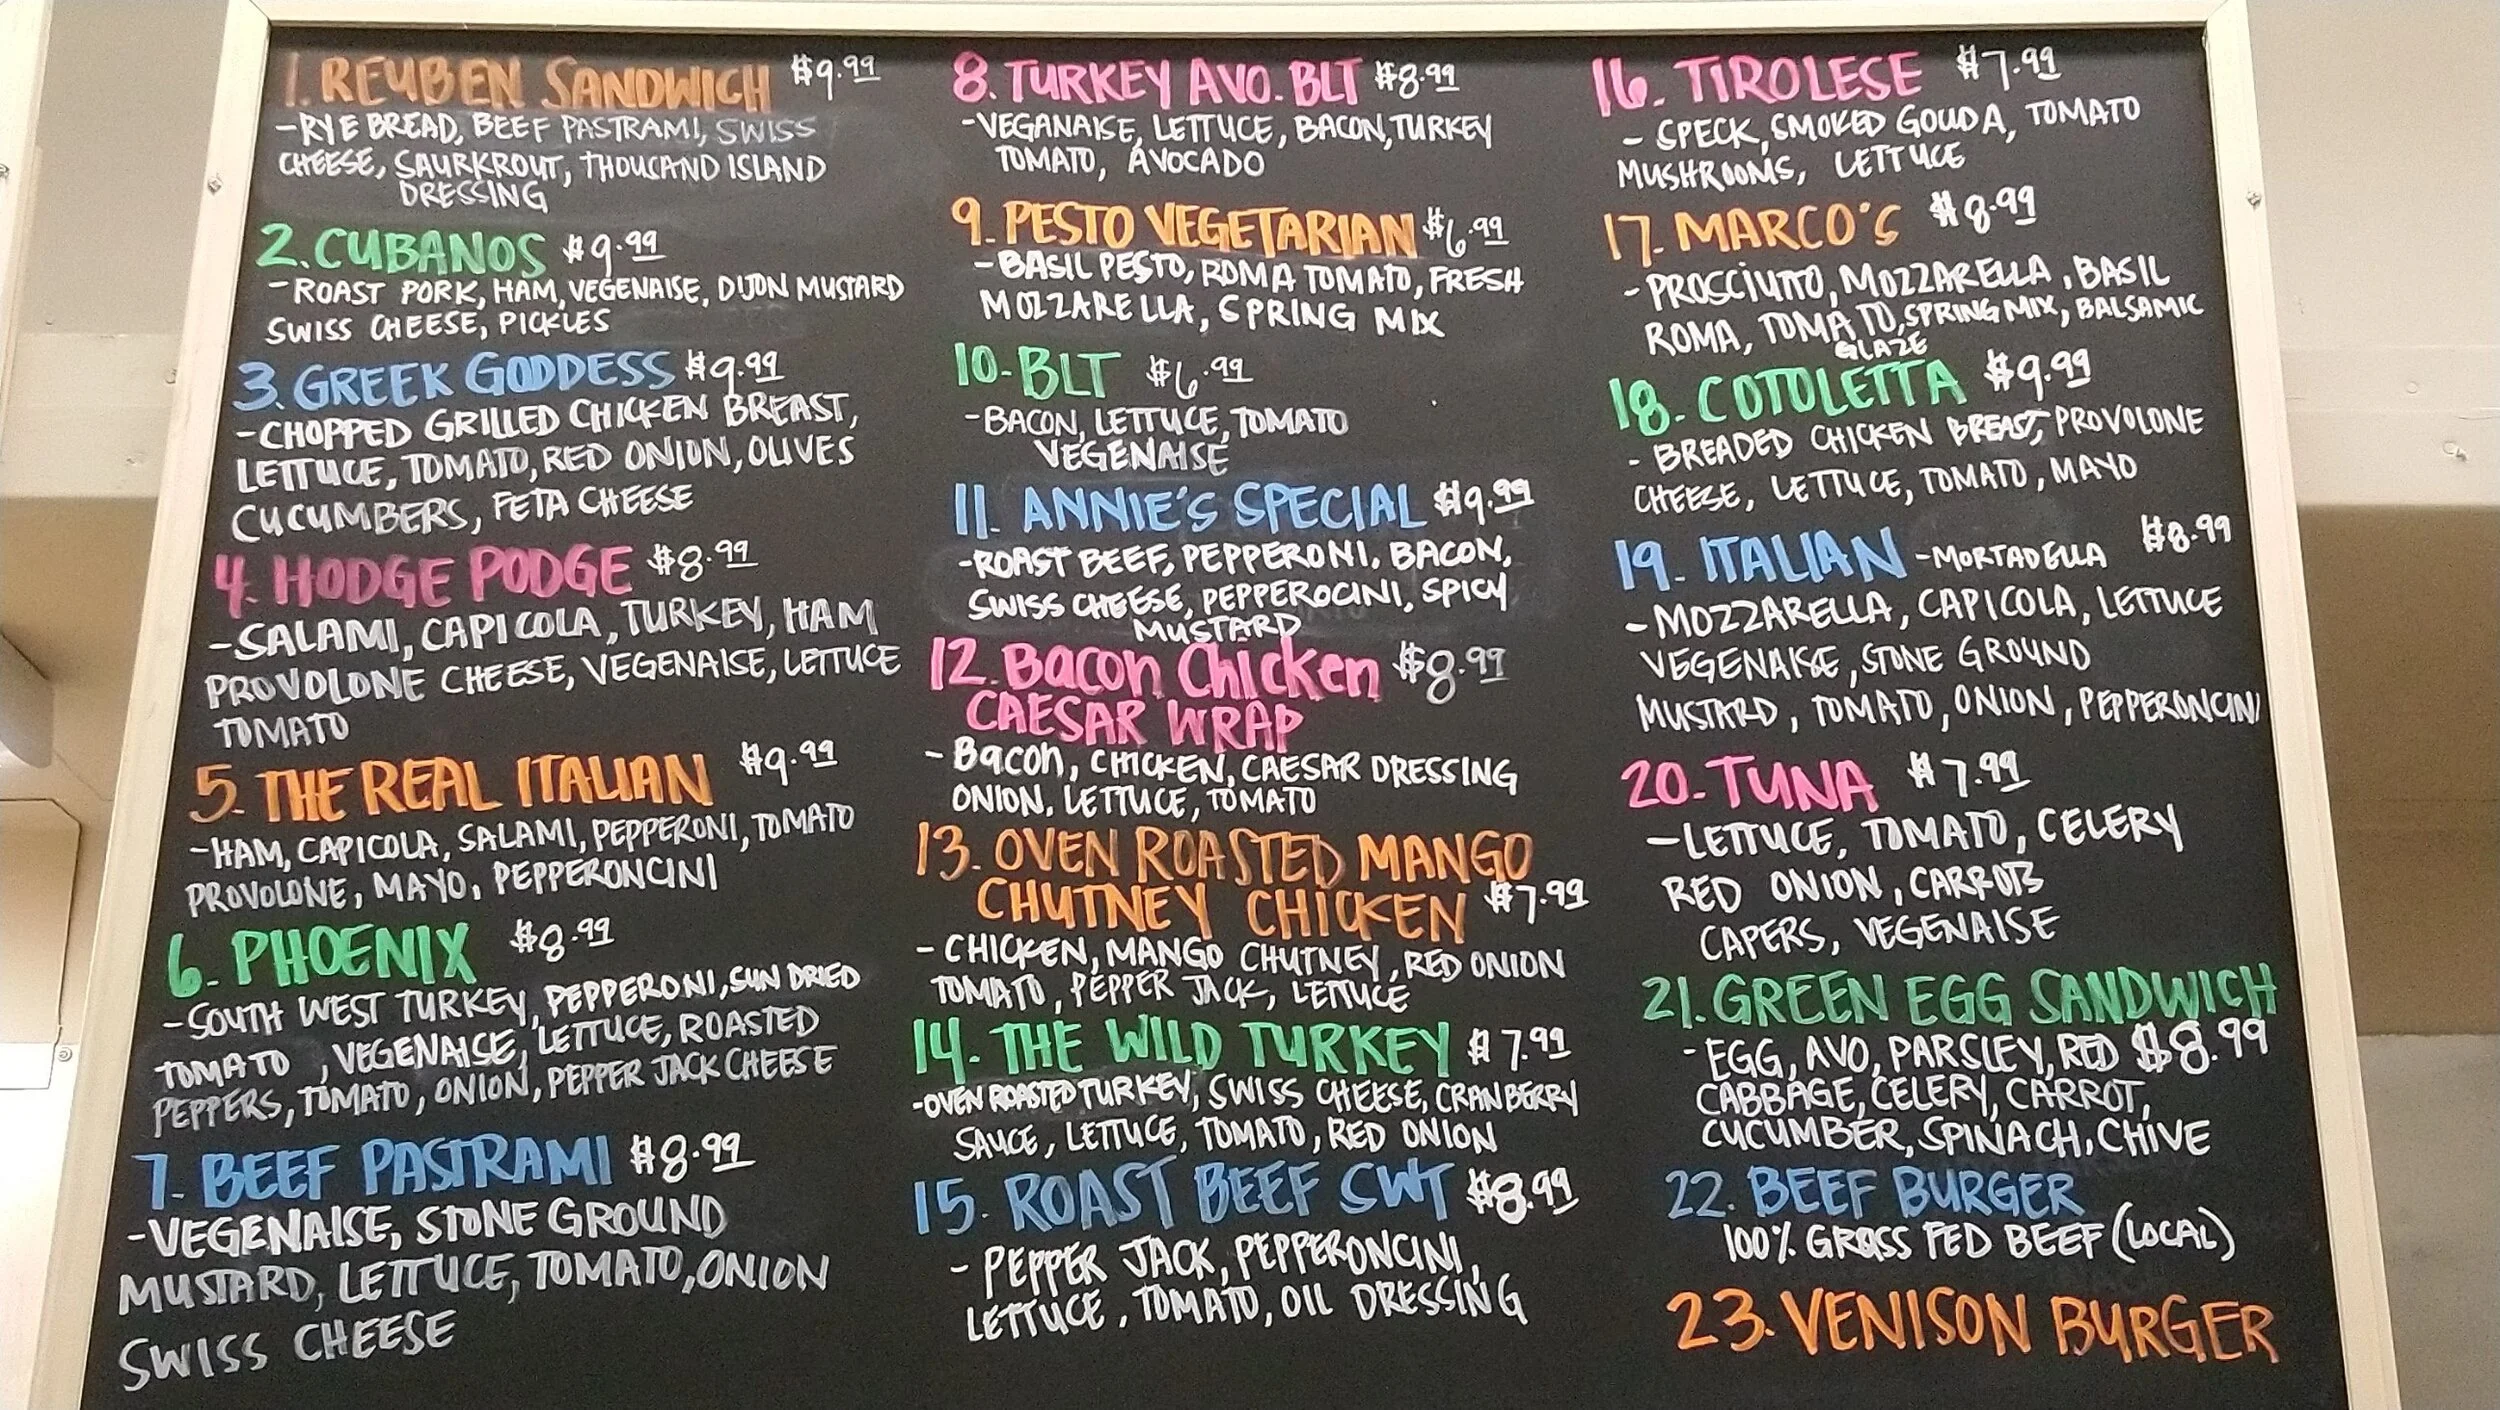 1. REUBEN SANDWICH $9.99
-RYE BREAD, BEEF PASTRAMI, SWISS
CHEESE, SAURKROUT, THOUSAND ISLAND
DRESSING
2. CUBANOS $9.99
-ROAST PORK, HAM, VEGENAISE, DIJON MUSTARD
SWISS CHEESE, PICKLES
3. GREEK GODDESS $9.99
-CHOPPED GRILLED CHICKEN BREAST,
LETTUCE, TOMATO, RED ONION, OLIVES
CUCUMBERS, FETA CHEESE
4. HODGE PODGE $8.99
-SALAMI, CAPICOLA, TURKEY, HAM
PROVOLONE CHEESE, VEGENAISE, LETTUCE
TOMATO
5. THE REAL ITALIAN $9.99
-HAM, CAPICOLA, SALAMI, PEPPERONI, TOMATO
PROVOLONE, MAYO, PEPPERONCINI
6. PHOENIX $8.99
-SOUTH WEST TURKEY, PEPPERONI, SUN DRIED
TOMATO, VEGENAISE, LETTUCE, ROASTED
PEPPERS, TOMATO, ONION, PEPPER JACK CHEESE
7. BEEF PASTRAMI $8.99
-VEGENAISE, STONE GROUND
MUSTARD, LETTUCE, TOMATO, ONION
SWISS CHEESE
8. TURKEY AVO. BLT $8.99
-VEGANAISE, LETTUCE, BACON, TURKEY
TOMATO, AVOCADO
9. PESTO VEGETARIAN $6.99
-BASIL PESTO, ROMA TOMATO, FRESH
MOZZARELLA, SPRING MIX
10. BLT $6.99
-BACON, LETTUCE, TOMATO
VEGENAISE
11. ANNIE'S SPECIAL $9.99
-ROAST BEEF, PEPPERONI, BACON,
SWISS CHEESE, PEPPEROCINI, SPICY
MUSTARD
12. Bacon Chicken $8.99
CAESAR WRAP
- Bacon, CHICKEN, CAESAR DRESSING
ONION, LETTUCE, TOMATO
13. OVEN ROASTED MANGO
CHUTNEY CHICKEN $7.99
- CHICKEN, MANGO CHUTNEY, RED ONION
TOMATO, PEPPER JACK, LETTUCE
14. THE WILD TURKEY $7.99
-OVEN ROASTED TURKEY, SWISS CHEESE, CRANBERRY
SAUCE, LETTUCE, TOMATO, RED ONION
15. ROAST BEEF SWT $8.99
- PEPPER JACK, PEPPERONCINI,
LETTUCE, TOMATO, OIL DRESSING
16. TIROLESE $7.99
- SPECK, SMOKED GOUDA, TOMATO
MUSHROOMS, LETTUCE
17. MARCO'S $8.99
- PROSCIUTTO, MOZZARELLA, BASIL
ROMA, TOMATO, SPRING MIX, BALSAMIC
GLAZE
18. COTOLETTA $9.99
- BREADED CHICKEN BREAST, PROVOLONE
CHEESE, LETTUCE, TOMATO, MAYO
19. ITALIAN -MORTADELLA $8.99
- MOZZARELLA, CAPICOLA, LETTUCE
VEGENAISE, STONE GROUND
MUSTARD, TOMATO, ONION, PEPPERONCINI
20. TUNA $7.99
- LETTUCE, TOMATO, CELERY
RED ONION, CARROTS
CAPERS, VEGENAISE
21. GREEN EGG SANDWICH
- EGG, AVO, PARSLEY, RED $8.99
CABBAGE, CELERY, CARROT,
CUCUMBER, SPINACH, CHIVE
22. BEEF BURGER
100% GRASS FED BEEF (LOCAL)
23. VENISON BURGER